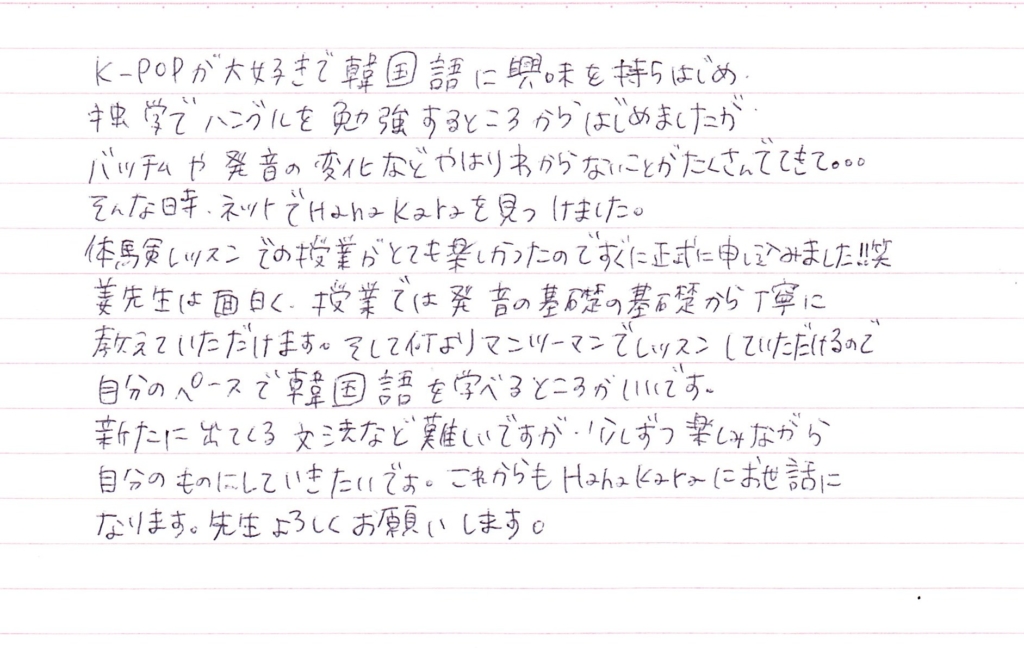 K-POPが大好きで韓国語に興味を持ちはじめ、
独学でハングルを勉強するところからはじめましたが、
パッチムや発音の変化などやはりわからないことがたくさんでてきて。。。
そんな時、ネットでHanaKaraを見つけました。
体験レッスンでの授業がとても楽しかったのですぐに正式に申し込みました!!笑
姜先生は面白く、授業では発音の基礎の基礎から丁寧に
教えていただけます。そして何よりマンツーマンでレッスンしていただけるので
自分のペースで韓国語を学べるところがいいです。
新たに出てくる文法など難しいですが、少しずつ楽しみながら
自分のものにしていきたいです。これからもHanaKaraにお世話に
なります。先生よろしくお願いします。